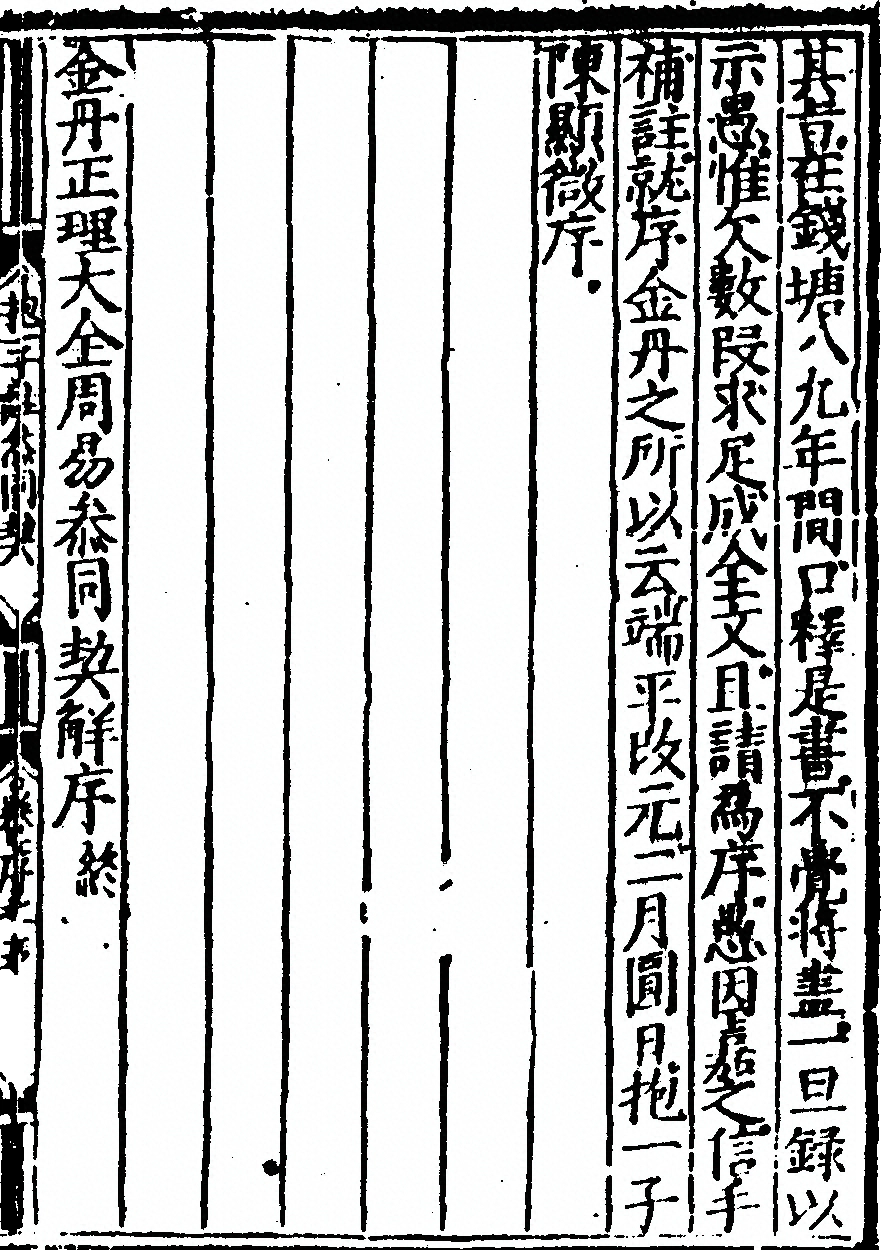 其昔在錢塘八九年間口釋是書不覺將盡一旦錄以
示愚惟欠數段求足成全文且請爲序愚因嘉之信手
補註就序金丹之所以云端平改元二月圓日抱一子
陳顯微序
金丹正理大全周易叅同契解序終
抱一子註叅同契